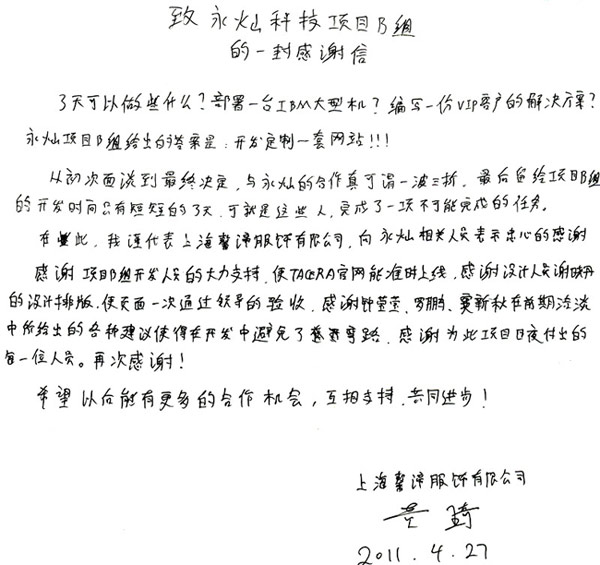 致永灿科技项目B组
的一封感谢信
3天可以做些什么？部署一台IBM大型机？编写一份VIP客户的解决方案？
永灿项目B组给出的答案是：开发定制一套网站！！！
从初次面谈到最终决定，与永灿的合作真可谓一波三折，最后留给项目B组
的开发时间只有短短的3天，可就是这些人，完成了一项不可能完成的任务。
在此，我谨代表上海馨谛服饰有限公司，向永灿相关人员表示忠心的感谢
感谢项目B组开发人员的大力支持，使TACERA官网能准时上线，感谢设计人员谢
的设计排版，使页面一次通过领导的验收，感谢钟莹莹、罗鹏、夏新秋在前期洽谈
中所给出的各种建议使得在开发中避免了弯路，感谢为此项目日夜付出的
每一位人员。再次感谢！
希望以后能有更多的合作机会，互相支持，共同进步！
上海馨谛服饰有限公司
2011.4.27